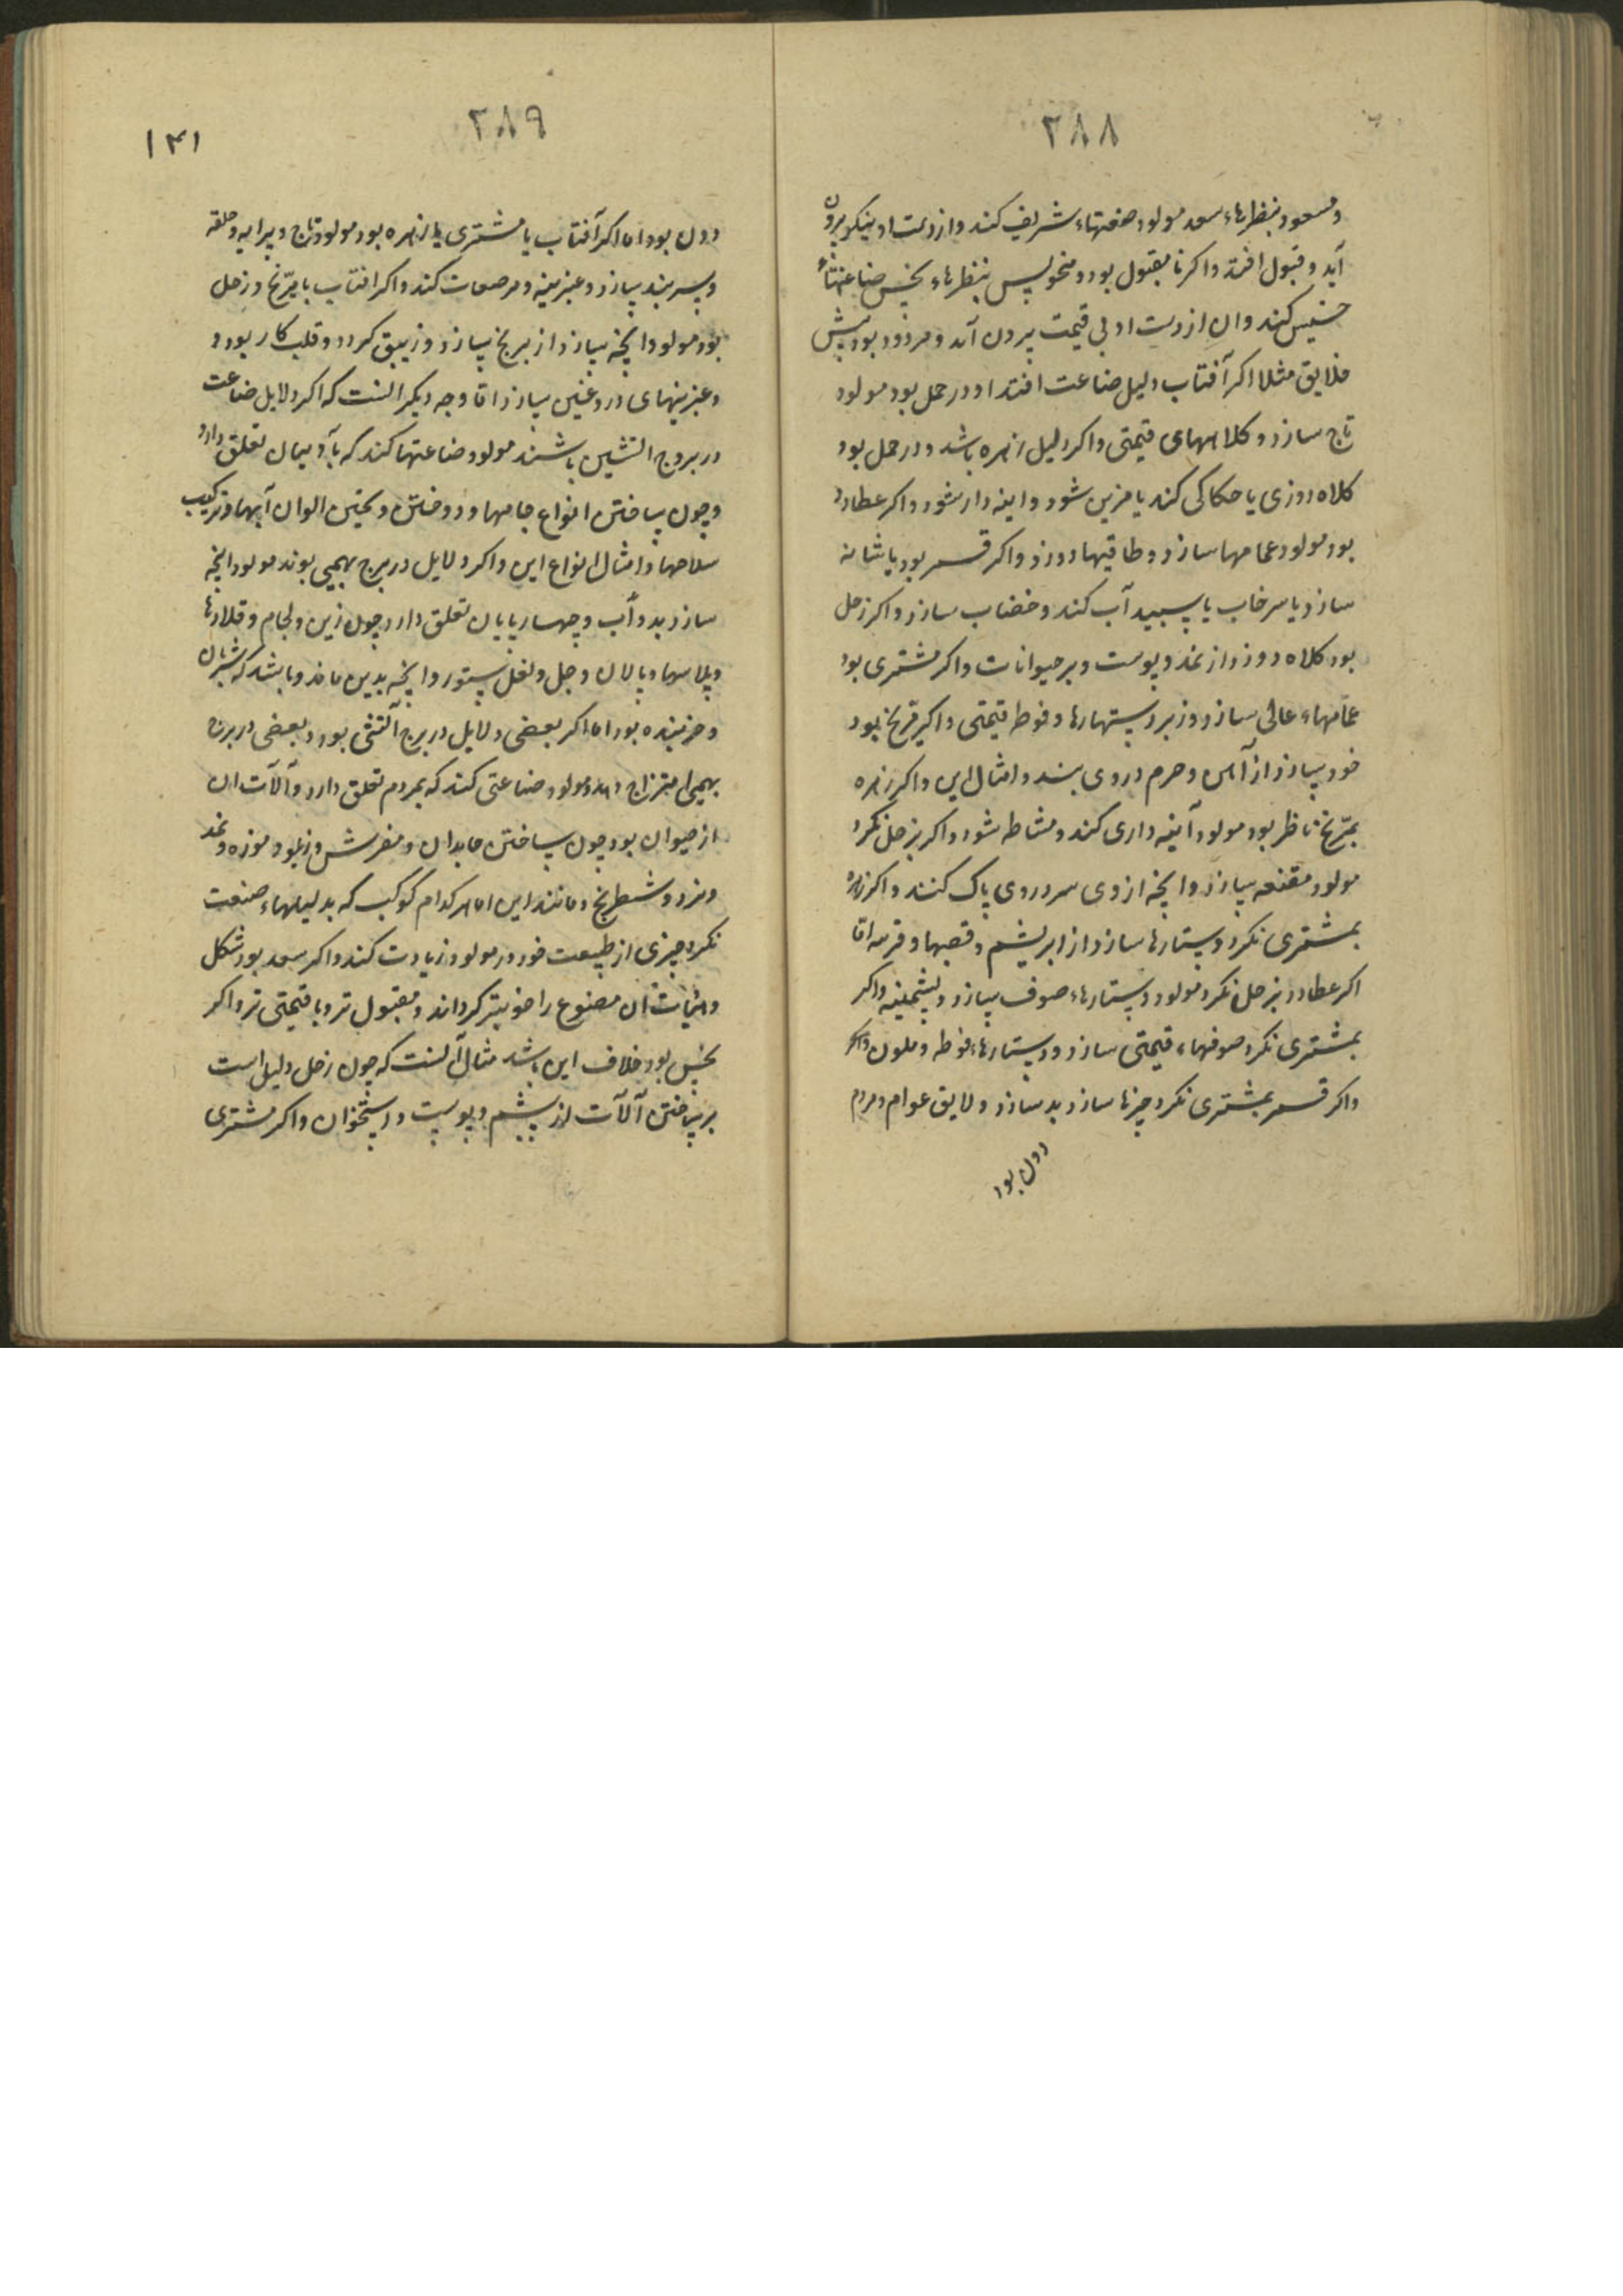 ۲۸۸
و مسعود بنظرهاء سعد مولود صفتهاء شریف کند و از دست او نیکو بیرون
آید و قبول افتد و اکر نا مقبول بود و منحوس بنظرهاء نحس صناعتهاء
خسیس کند و ان از دست او بی قیمت بیرون آمد و مردود بود پیش
خلایق مثلا اکر آفتاب دلیل صناعت افتد او در حمل بود مولود
تاج سازد و کلاههای قیمتی و اکر دلیل زهره باشد و در حمل بود
کلاه دوزی یا حکاکی کند یا مزین شود و اینه دار شود و اکر عطارد
بود مولود عمامها سازد و طاقیها دوزد و اکر قمر بود یا شانه
سازد یا سرخاب یا سپید آب کند و خضاب سازد و اکر زحل
بود کلاه دوزد از نمد و پوست و بر حیوانات و اکر مشتری بود
عمامهاء عالی سازد و زبر دستهارها و فوطه قیمتی و اکر مریخ بود
خود سازد از آهن و هرچه در وی بندد و امثال این و اکر زهره
بمریخ ناظر بود مولود آینه داری کند و مشاطه شود و اکر بزحل نکرد
مولود مقنعه سازد و انچه از وی سر و روی پاک کنند و اکر زهره
بمشتری نکرد دستارها سازد از ابریشم و قصبها و اما
اکر عطارد بزحل نکرد مولود دستارهاء صوف سازد و پشمینه و اکر
بمشتری نکرد صوفهاء قیمتی سازد و دستارهاء فوطه و ملون و اکر
و اکر قمر بمشتری نکرد چیزها سازد بد سازد و لایق عوام و مردم
دون بود
۲۸۹
۱۴۱
دون بود اما اکر آفتاب با مشتری یا زهره بود مولود تاج و پیرایه و حلقه
و سربند سازد و عنبرینه و مرصعات کند و اکر افتاب با مریخ و زحل
بود مولود انچه سازد از برنج سازد و زیبق کردد و قلب کار بود و
و عنبرینهای دروغین سازد اما وجه دیکر انست که اکر دلایل صناعت
در بروج اتشین باشند مولود صناعتها کند که بآدمیان تعلق دارد
و چون ساختن انواع جامها و دوختن و پختن الوان آبها و ترکیب
سلاحها و امثال انواع این و اکر دلایل در برج بهیمی بوند مولود انچه
سازد بدواب و چهارپایان تعلق دارد چون زین و لجام و قلادها
و پلاسها و پالان و جل و نعل ستور و انچه بدین ماند و باشد که شتربان
و خربنده بود اما اکر بعضی دلایل در برج آتشی بود و بعضی در برج
بهیمی امتزاج دهد و مولود صناعتی کند که بمردم تعلق دارد و آلات ان
از حیوان بود چون ساختن جامدان و مفرش و زیلو و موزه و نمد
و نرد و شطرنج و مانند این اما هر کدام کوکب که بدلیلهاء صنعت
نکرد چیزی از طبیعت خود در مولود زیادت کند و اکر سعد بود شکل
و هیأت ان مصنوع را خوبتر کرداند و مقبول تر و با قیمتی تر و اکر
نحس بود خلاف این باشد مثال آنست که چون زحل دلیل است
بر ساختن آلات از پشم و پوست و استخوان و اکر مشتری